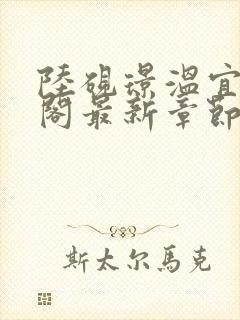 陸硯璟溫宜
閣最新章節
斯太尔馬克